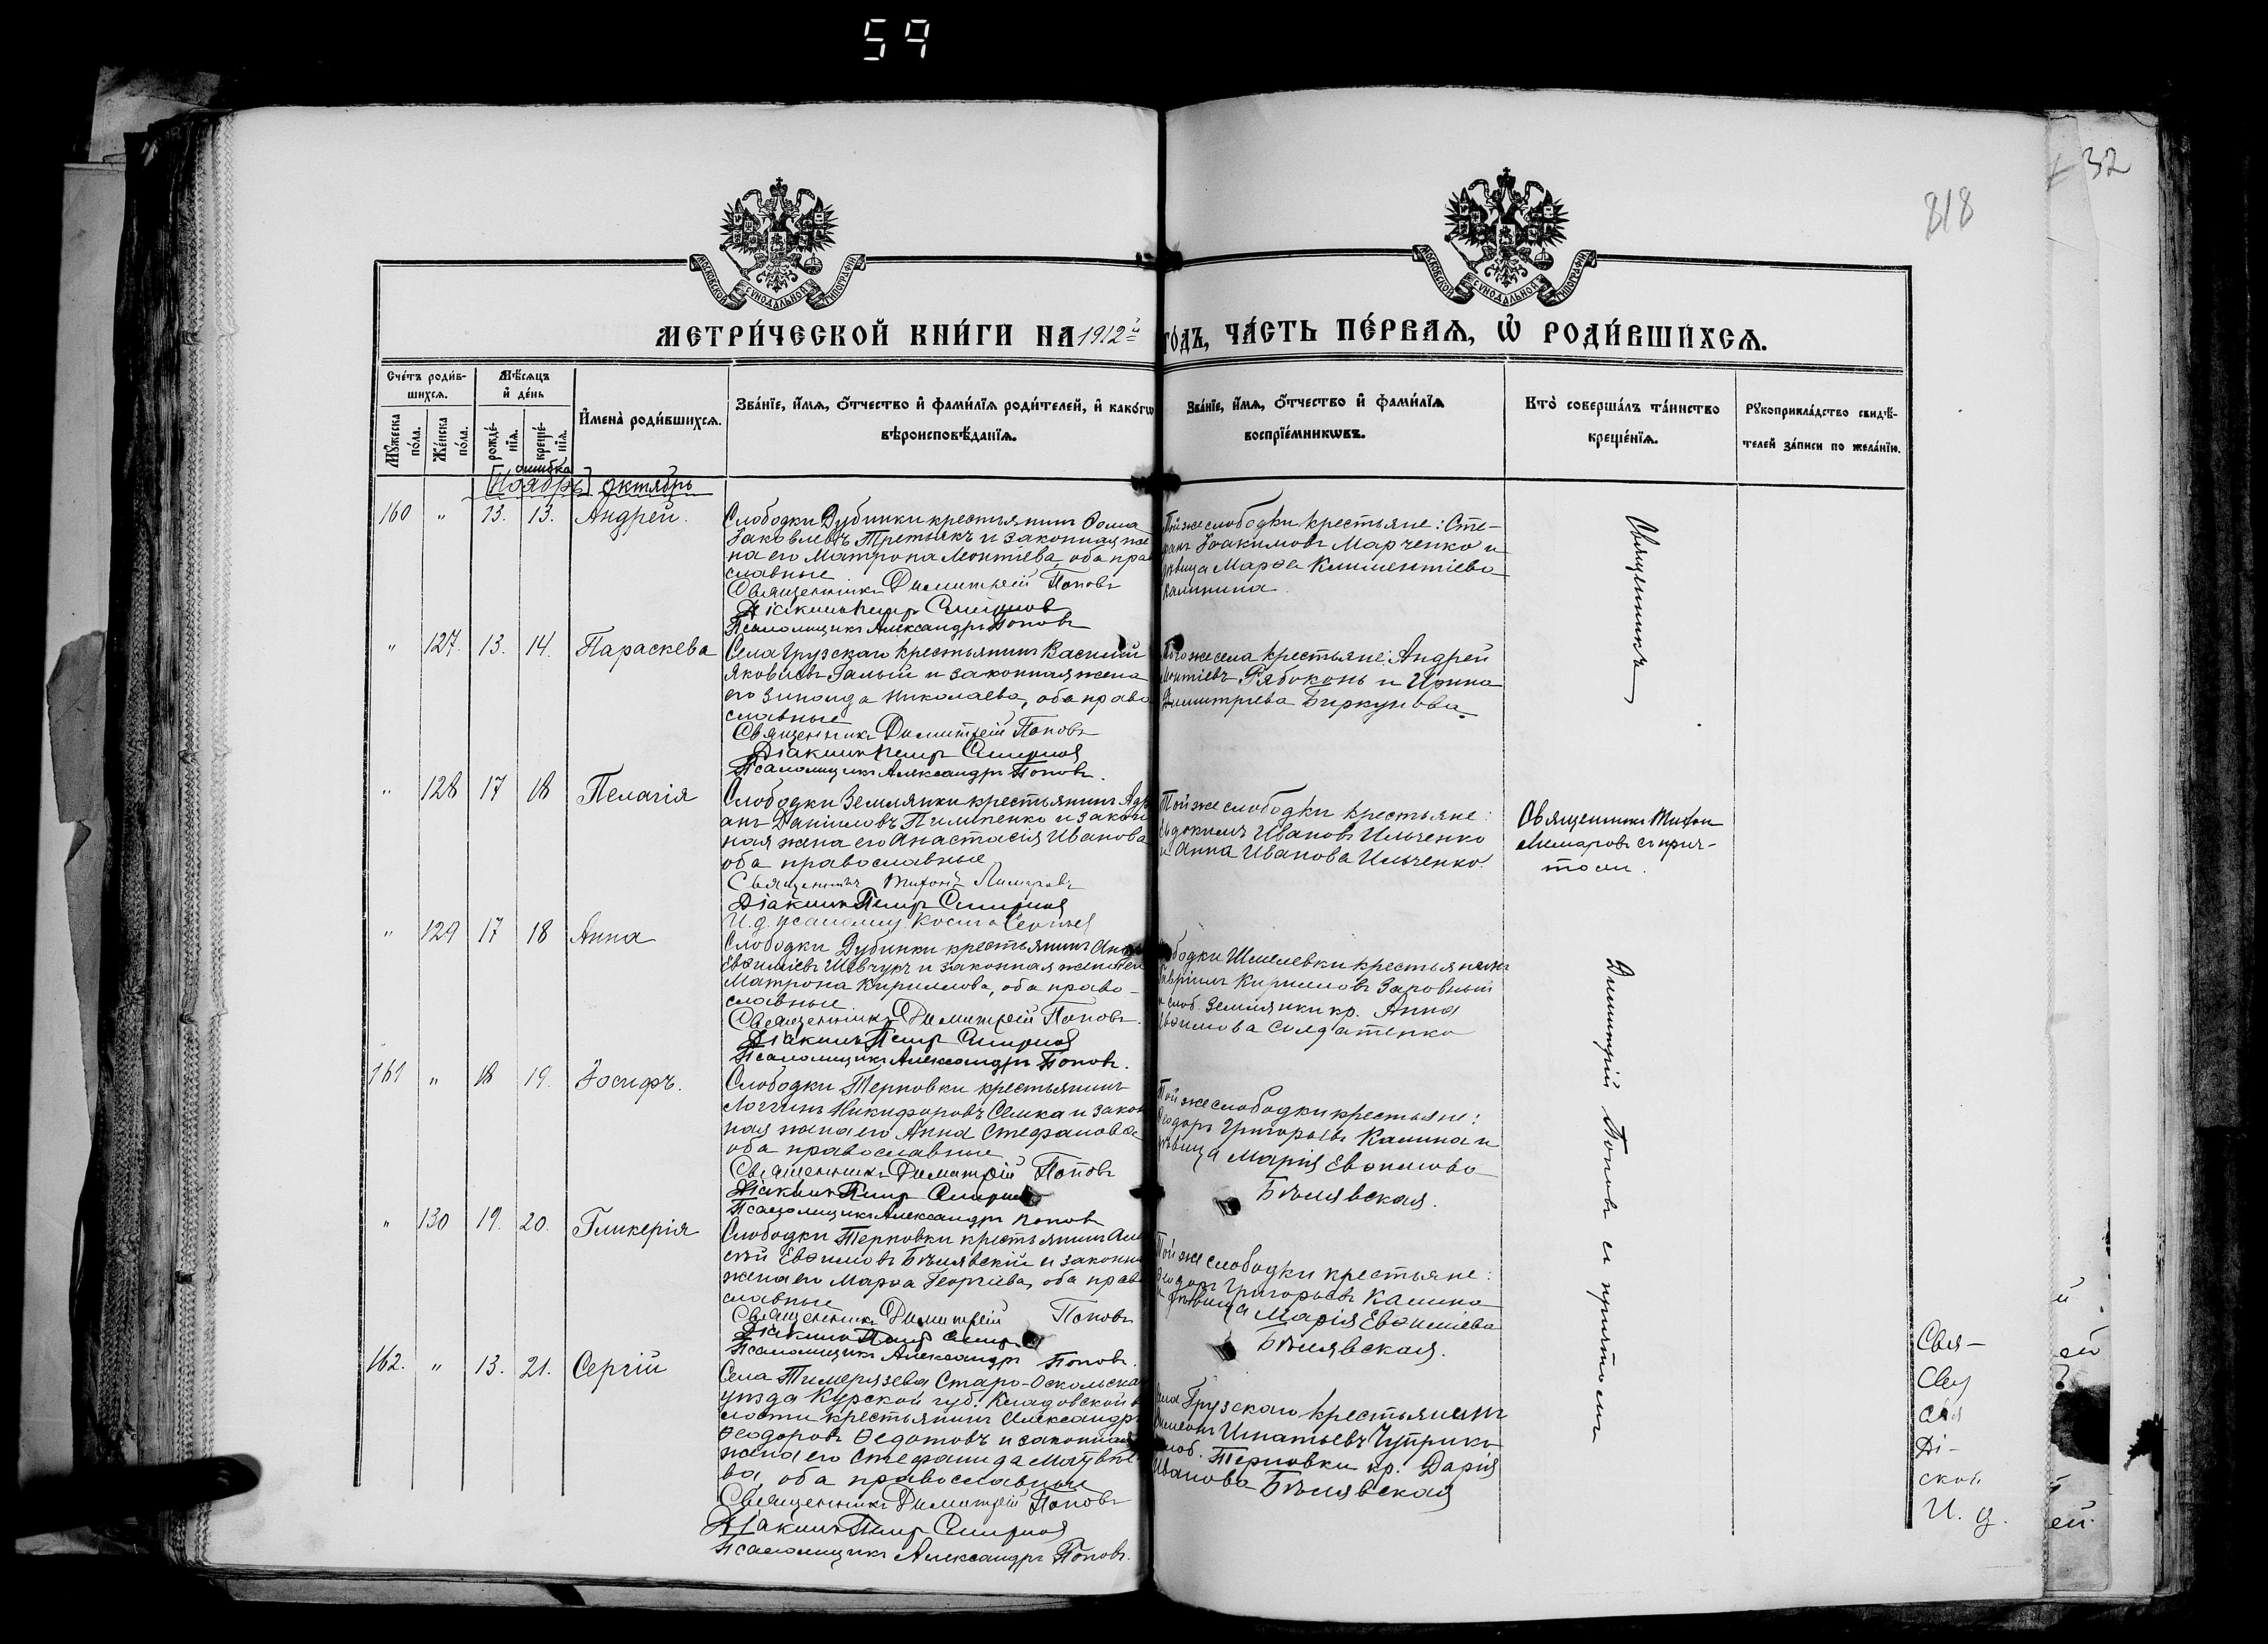 59
32
818
МОСКОВСКОЙ СѴНОДАЛЬНОЙ ТИПОГРАФІИ
МОСКОВСКОЙ СѴНОДАЛЬНОЙ ТИПОГРАФІИ
МЕТРИ́ЧЕСКОЙ КНИ́ГИ НА 1912й
ГО́ДЪ, ЧА́СТЬ ПЕ́РВАѦ, Ѡ РОДИ́ВШИХСѦ.
Сче́тъ роди́в-
шихсѧ.
Мѣ́сѧцъ
и҆ де́нь
Мꙋ́жеска по́ла.
Же́нска по́ла.
рожде́-
нїѧ.
креще́-
нїѧ.
И҆мена̀ роди́вшихсѧ.
Зва́нїе, и҆́мѧ, ѻ҆́тчество и҆ фами́лїѧ роди́телей, и҆ како́гѡ
вѣроисповѣ́данїѧ.
Зва́нїе, и҆́мѧ, ѻ҆́тчество и҆ фами́лїѧ
воспрїе́мникѡвъ.
Кто̀ соверша́лъ та́инство
креще́нїѧ.
Рꙋкоприкла́дство свидѣ́-
телей за́писи по жела́нїю.
ошибка
[Ноябрь] октябрь
160 " 13. 13. Андрей.
Слободки Дубинки крестьянинъ Ѳома
Іаковлевъ Третьякъ и законная же
на его Матрона Леонтіева, оба пра
славные
Священникъ Димитрій Поповъ
Діаконъ Петръ Смирнов
Псаломщикъ Александръ Поповъ
Той же слободки крестьяне: Сте-
фанъ Іоакимовъ Марченко и
дѣвица Марѳа Климентіева
Калинина
" 127. 13. 14. Параскева
Села Грузскаго крестьянинъ Василій
Яковлевъ Галый и законная жена
его Зинаида Николаева, оба право
славные
Священникъ Димитрій Поповъ
Діаконъ Петръ Смирнов
Псаломщикъ Александръ Поповъ.
Того же села крестьяне: Андрей
Леонтіевъ Рябоконь и Ирина
Димитріева Биркунова.
" 128 17 18 Пелагія
Слободки Землянки крестьянинъ Адрі
анъ Даниловъ Пилипенко и закон
ная жена его Анастасія Иванова
оба православные
Священникъ Тихонъ Лимаровъ
Діаконъ Петръ Смирнов
И. д. псаломщ.
Той же слободки крестьяне:
Евдокимъ Ивановъ Ильченко
и Анна Иванова Ильченко.
Священникъ Тихон
Лимаровъ съ прич-
томъ.
" 129 17 18 Анна
Слободки Дубинки крестьянинъ
Евѳиміевъ Шевчукъ и законная жена его
Матрона Кириллова, оба право-
славные
Священникъ Димитрій Поповъ.
Діаконъ Петръ Смирнов
Псаломщикъ Александръ Поповъ.
слободки Шмелевки крестьянинъ
Гавріилъ Кирилловъ Заровный
и слоб. Землянки кр. Анна
Евѳимова Солдатенко
161 " 18 19. Іосифъ.
Слободки Терновки крестьянинъ
Логгинъ Никифоровъ Семка и закон
ная жена его Анна Стефанова
оба православные
Священникъ Димитрій Поповъ
Діаконъ Петръ Смирнов
Псаломщикъ Александръ Поповъ
Той же слободки крестьяне:
Ѳеодоръ Григорьевъ Калина и
дѣвица Марія Евѳимова
Бѣлявская.
" 130 19. 20. Гликерія
Слободки Терновки крестьянинъ Але
ксѣй Евѳимовъ Бѣлявскій и законн
жена его Марѳа Георгіева, оба прав
славные
Священникъ Димитрій Поповъ
Діаконъ Петръ Смир
Псаломщикъ Александръ Поповъ.
Той же слободки крестьяне:
Ѳеодоръ Григорьевъ Калина
и дѣвица Марія Евѳиміева
Бѣлявская.
162. " 13. 21. Сергій
Села Тимерязева Старо-Оскольска
уѣзда Курской губ. Кладовской в
лости крестьянинъ Александръ
Ѳеодоровъ Ѳедотовъ и законная
жена его Стефанида Матвѣе
ва, оба православные
Священникъ Димитрій Поповъ
Діаконъ Петръ Смирнов
Псаломщикъ Александръ Поповъ.
села Грузскаго крестьянинъ
Симеонъ Игнатьевъ Чуприко
слоб. Терновки кр. Дарія
Иванова Бѣлявская
Священникъ
Димитрій Поповъ съ причтомъ
Свя-
Ді-
ской
И. д.
ей
ей